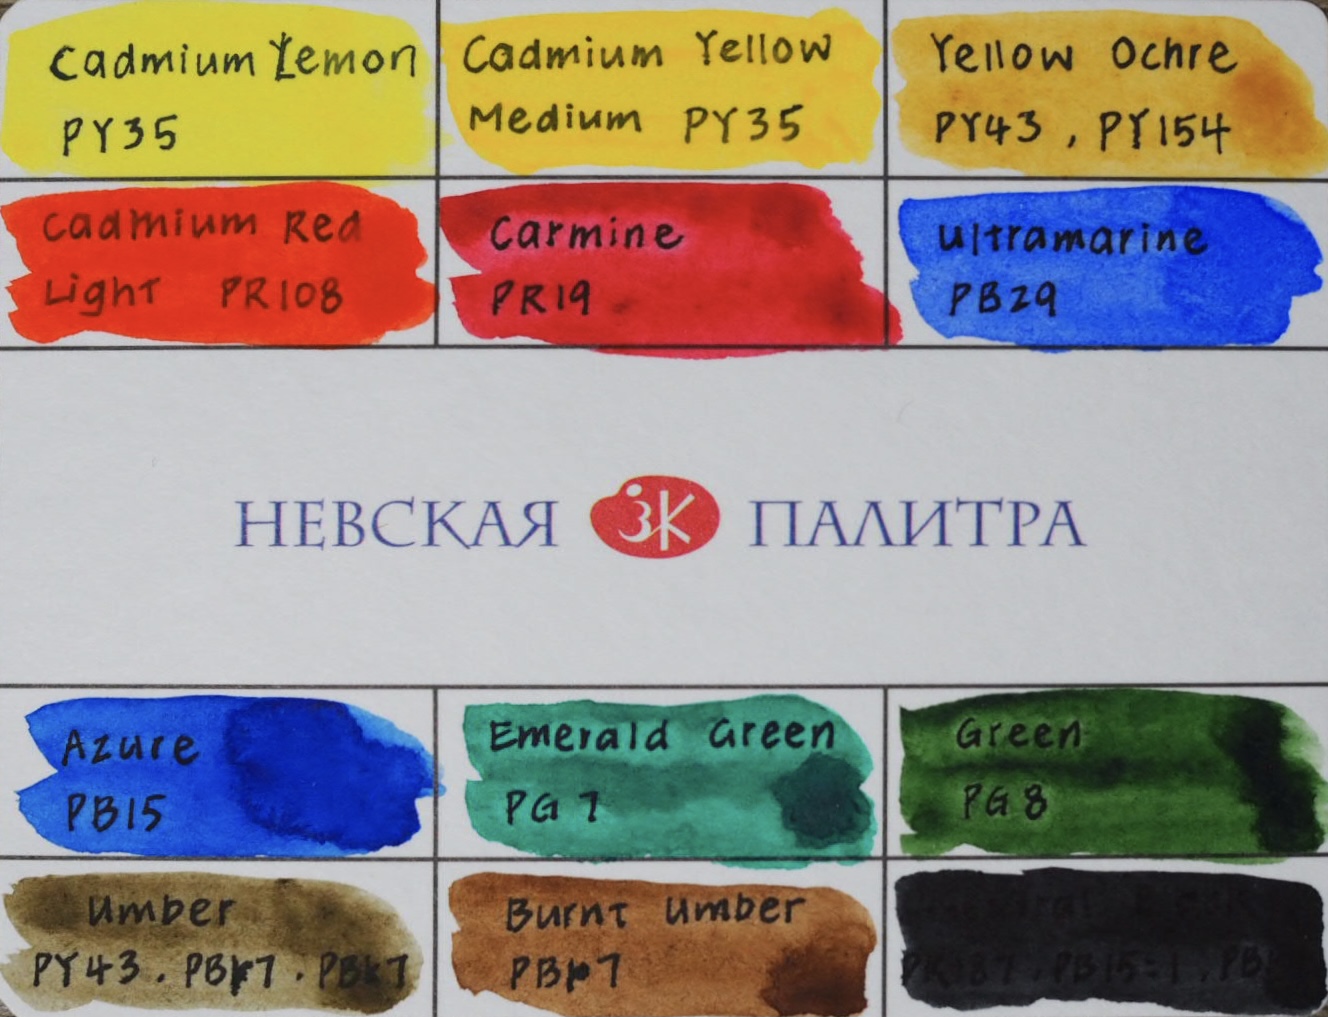 Cadmium Lemon
PY35
Cadmium Yellow
Medium PY35
Yellow Ochre
PY43, PY154
Cadmium Red
Light PR108
Carmine
PR19
Ultramarine
PB29
НЕВСКАЯ ЗК ПАЛИТРА
Azure
PB15
Emerald Green
PG 7
Green
PG 8
Umber
PY43. PBr7. PBk7
Burnt Umber
PBr7
PB15:1